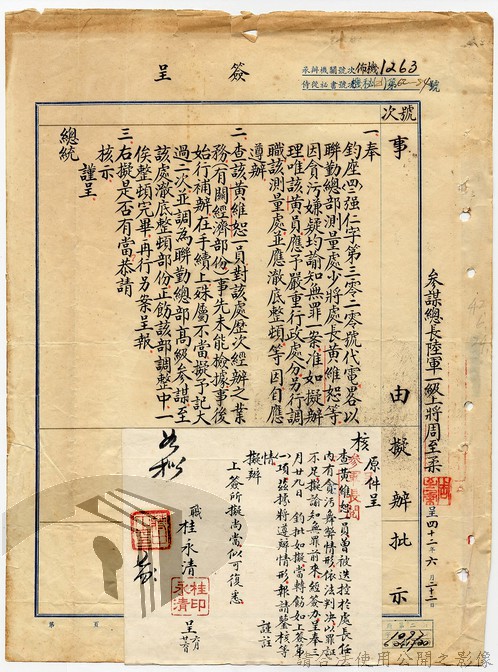 簽呈
承辦機關號次佈機1263
侍從祕書號次機祕(乙)第
號
號次
事由擬辦批示
參謀總長陸軍一級上將周至柔
呈四十二年六月二十二日
一、奉
鈞座(四二)强仁字第三零二零號代電畧以
聯勤總部測量處少將處長黃維恕等
因貪污嫌疑均諭知無罪一案准如擬辦
理唯該黃員應予嚴重行政處分另行調
職該測量處並應澈底整頓等因自應
遵辦
二、查該黃維恕一員對該處歷次經辦之業
務(有關經濟部份)事先未能檢據事後
始行補辦在手續上殊屬不當擬予記大
過二次並調為聯勤總部高級參謀至
該處澈底整頓部份正飭該部調整中一
俟整頓完畢再行另案呈報
三、右擬是否有當恭請
核示
謹呈
總統
原件呈
核
查黃維恕一員曾被送控於處長任
內有貪污舞弊情形依法判決以罪証
不足擬諭知無罪前來經簽辦呈奉三
月廿九日
鈞批如擬當轉飭如上簽第
一項茲據將遵辦情形報請鑒核等
情
謹註
擬辦
上簽所擬尚當似可復悉
職桂永清
桂永清印
呈
如擬
第 頁